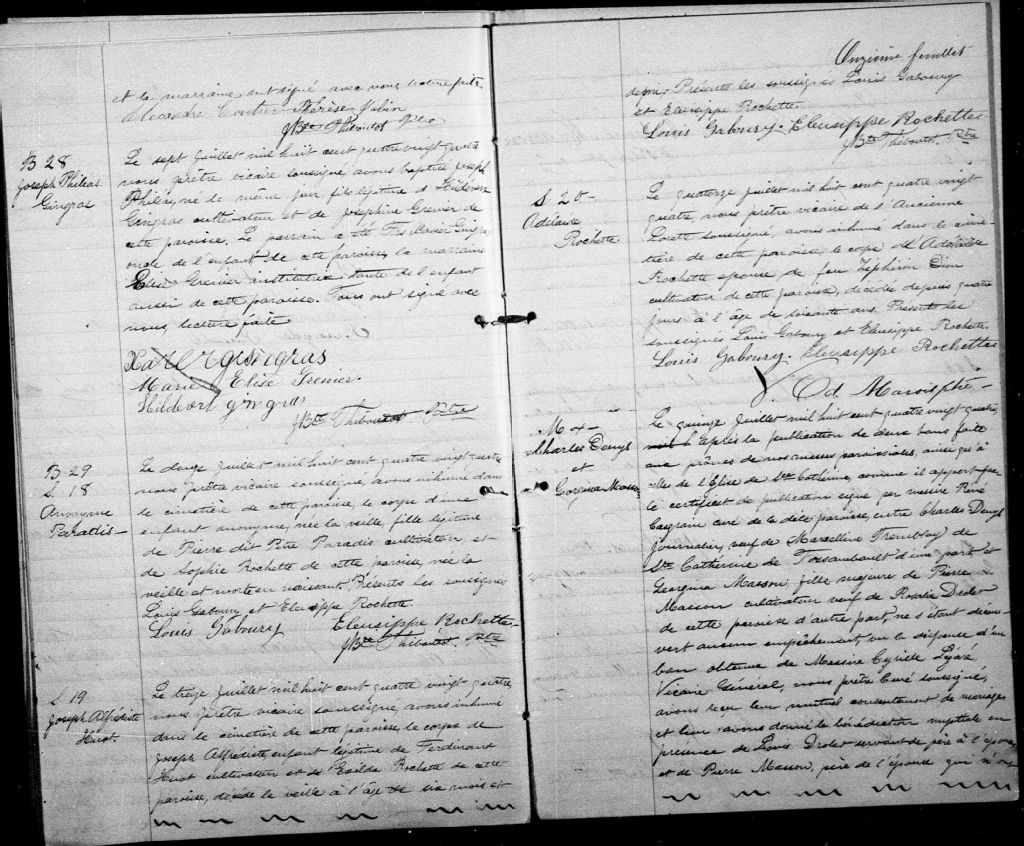 et la marraine ont signé avec nous lecture faite.
Alexandre Thérèse Robin
J Bte Thiboutot Ptre
B 28
Joseph Philéas
Gingras
Le sept Juillet mil huit cent quatre vingt quatre
nous prêtre vicaire soussigné avons baptisé Joseph
Philéas né le même jour, fils légitime d'
Gingras cultivateur et de Joséphine Grenier de
cette paroisse. Le parrain a été Frs Xavier Gingras
oncle de l'enfant de cette paroisse, la marraine
Elise Grenier institutrice tante de l'enfant
aussi de cette paroisse. Tous ont signé avec
nous lecture faite
Xavier gingras
Marie Elise Grenier.
Hildevert gingras
J Bte Thiboutot Ptre
B 29
S. 18
Anonyme
Paradis
Le douze Juillet mil huit cent quatre vingt quatre
nous prêtre vicaire soussigné, avons inhumé dans
le cimetière de cette paroisse, le corps d'une
enfant anonyme, née la veille fille légitime
de Pierre dit Pitre Paradis cultivateur, et
de Sophie Rochette de cette paroisse, née la
veille et morte en naissant. Présents les soussignés
Louis Gaboury et Eleusippe Rochette.
Louis Gaboury Eleusippe Rochette
J Bte Thiboutot. Ptre
S. 19
Joseph Alfrédiste
Huot.
Le treize Juillet mil huit cent quatre vingt quatre,
nous prêtre vicaire soussigné, avons inhumé
dans le cimetière de cette paroisse, le corps de
Joseph Alfrédiste, enfant légitime de Ferdinand
Huot cultivateur et de Exilda Rochette de cette
paroisse, décédé la veille à l'âge de six mois et
Onzième feuillet
demi. Présents les soussignés Louis Gaboury
et Eleusippe Rochette.
Louis Gaboury. Eleusippe Rochette
J Bte Thiboutot. Ptre
S. 20
Adélaïde
Rochette
Le quatorze juillet mil huit cent quatre vingt
quatre, nous prêtre vicaire de l'Ancienne
Lorette soussigné, avons inhumé dans le cime
tière de cette paroisse, le corps d'Adélaïde
Rochette épouse de feu Zéphirin Dion
cultivateur de cette paroisse, décédée depuis quatre
jours à l'âge de soixante ans. Présents les
soussignés Louis Gaboury et Eleusippe Rochette.
Louis Gaboury. Eleusippe Rochettes
J. Od. Marois ptre
M 4
Charles Denys
et
Georgina Masson
Le quinze Juillet mil huit cent quatre vingt quatre,
après la publication de deux bans faite
aux prônes de nos messes paroissiales, ainsi qu'à
celles de l'Eglise de Ste Catherine, comme il appert par
le certificat de publication signé par messire René
Casgrain curé de la dite paroisse, entre Charles Denys
Journalier, veuf de Marcelline Tremblay de
Ste Catherine de Fossambault d'une part et
Georgina Masson, fille majeure de Pierre
Masson cultivateur veuf de Rosalie Drolet
de cette paroisse d'autre part, ne s'étant décou-
vert aucun empêchement, vu la dispense d'un
ban obtenue de Messire Cyrille Légaré,
Vicaire Général, nous prêtre Curé soussigné,
avons reçu leur mutuel consentement de mariage
et leur avons donné la bénédiction nuptiale en
présence de Louis Drolet servant de père à l'époux
et de Pierre Masson, père de l'épouse qui n'ont